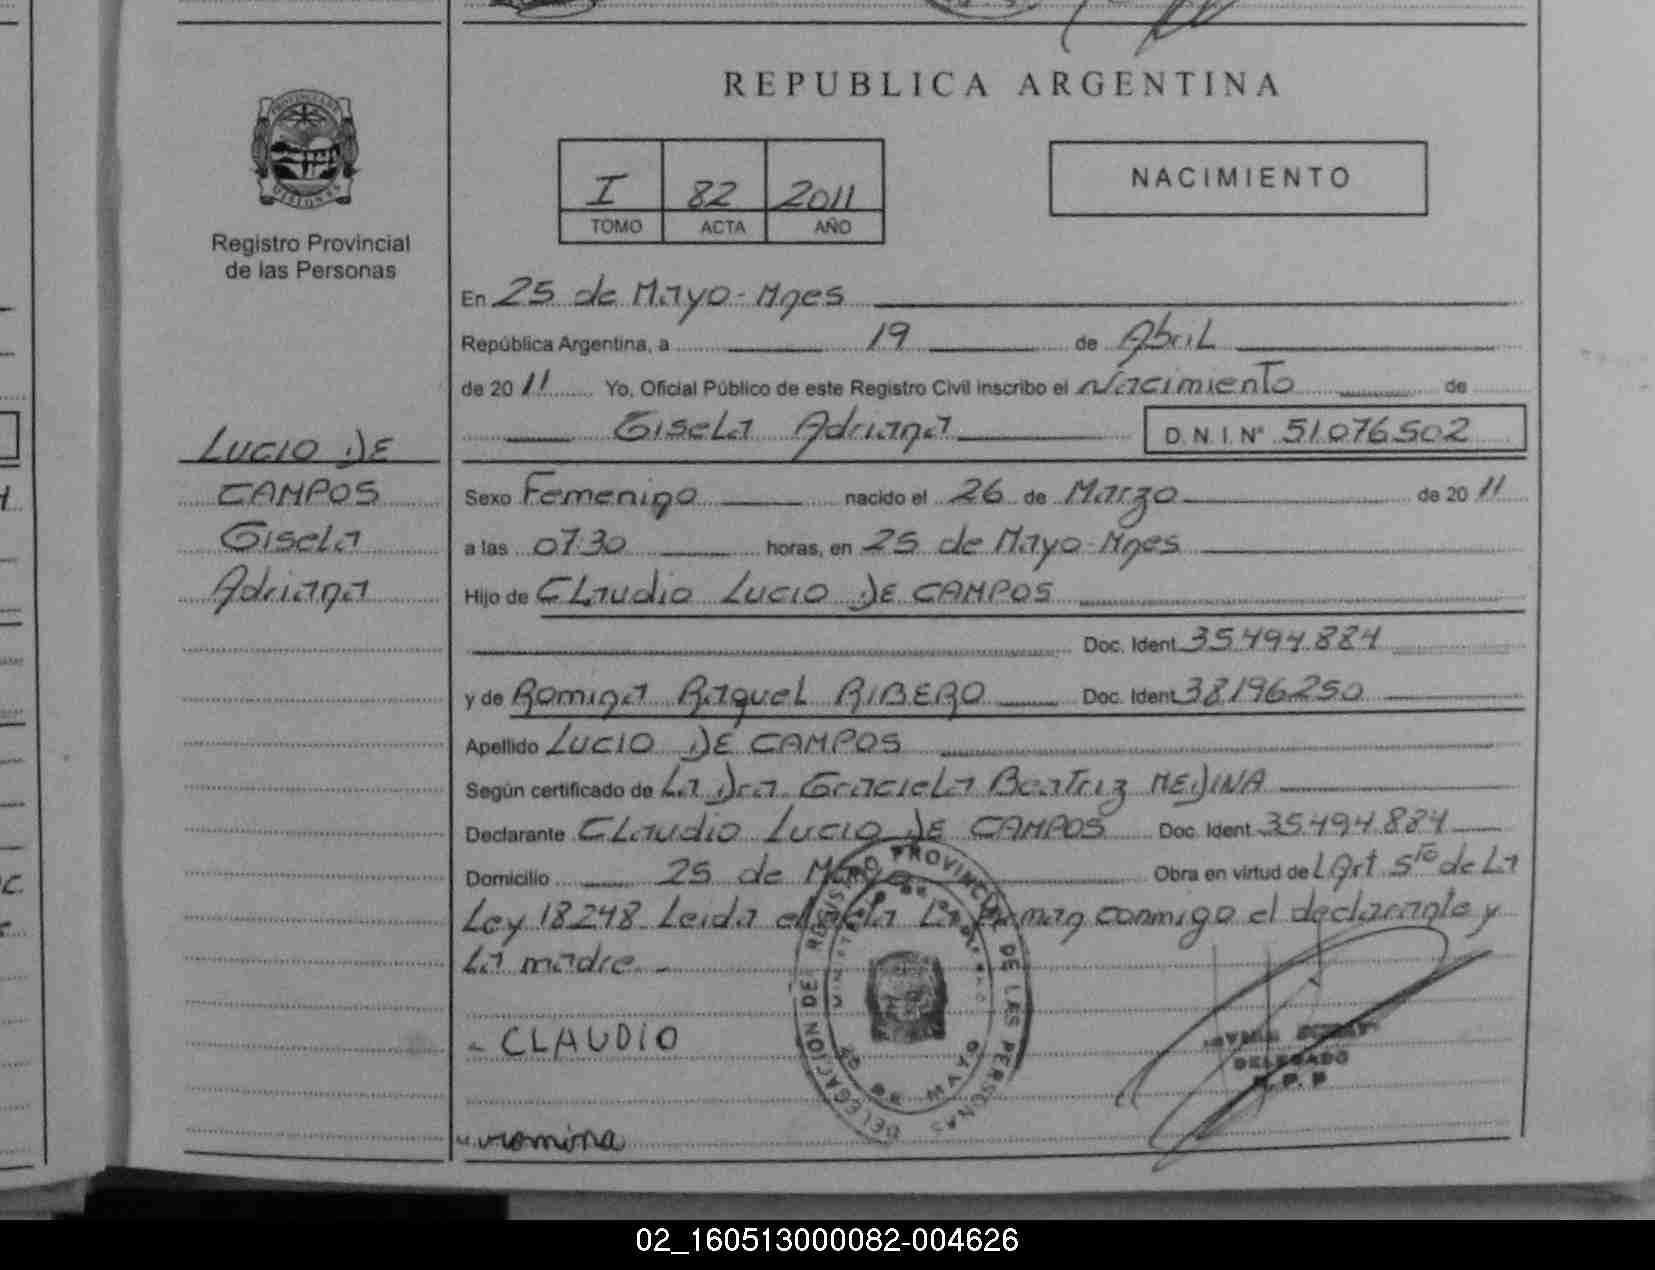 REPUBLICA ARGENTINA
PROVINCIA DE
MISIONES
Registro Provincial
de las Personas
I 82 2011
TOMO ACTA AÑO
NACIMIENTO
En 25 de Mayo - Mnes
República Argentina, a 19 de Abril
de 2011 Yo, Oficial Público de este Registro Civil inscribo el Nacimiento de
Gisela Adriana D.N.I. Nº 51076502
LUCIO DE
CAMPOS
Gisela
Adriana
Sexo Femenino nacido el 26 de Marzo de 2011
a las 0730 horas, en 25 de Mayo-Mnes
Hijo de Claudio Lucio DE CAMPOS
Doc. Ident. 35.494.884
y de Romina Raquel RIBERO Doc. Ident 38196250
Apellido LUCIO DE CAMPOS
Según certificado de La Dra Graciela Beatriz MEDINA
Declarante Claudio Lucio DE CAMPOS Doc. Ident. 35.494.884
Domicilio 25 de Mayo Obra en virtud de L Art 5to de La
Ley 18248 Leida el acta La firman conmigo el declarante y
La madre -
- CLAUDIO
romina
DELEGACION DEL REGISTRO PROVINCIAL DE LAS PERSONAS
DELEGADO
R. P. P
02_160513000082-004626